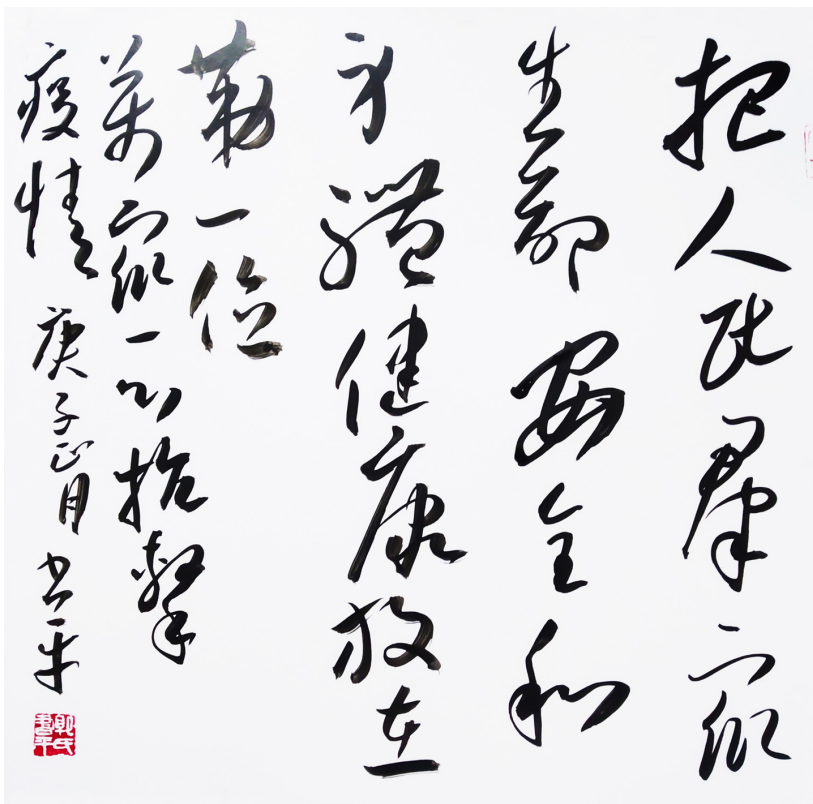 把人民羣眾
生命安全和
身體健康放在
第一位
萬眾一心抗擊
疫情 庚子正月 书平